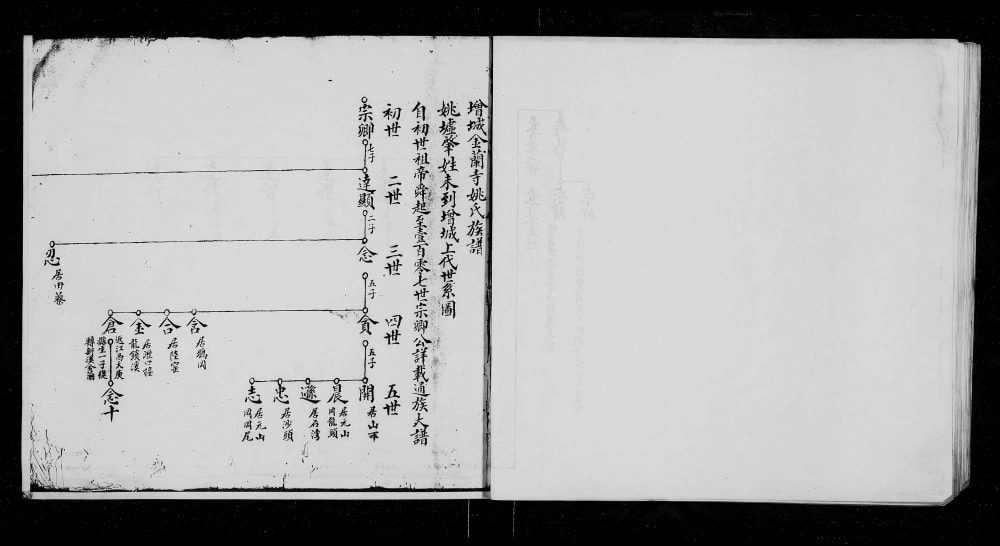 增城金蘭寺姚氏族譜
姚墟肇姓未到增城上代世系圖
自初世祖帝舜起至壹百零七世宗卿公詳載通族大譜
初世
二世
三世
四世
五世
宗卿
七子
達顯
二子
念
五子
貪
五子
開
居山下
晨
居元山
岡龍頭
遜
居石灣
忠
居沙頭
志
居元山
岡岡尾
含
居鶴岡
合
居陸窰
金
居滘口徑
龍鎖溪
倉
迯江西大庾
縣生一子復
轉新溪金蘭
念十
忍
居田藔